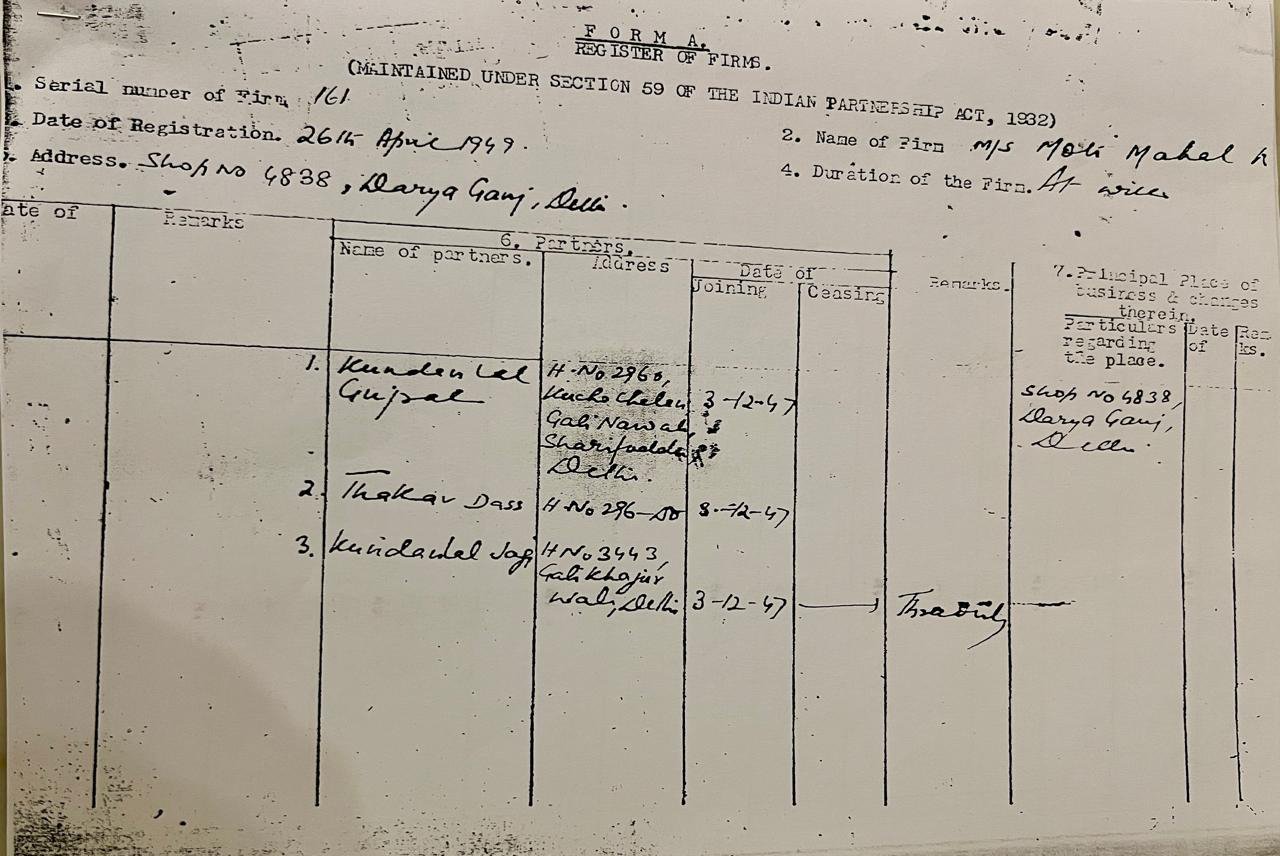 F O R M A.
REGISTER OF FIRMS.
(MAINTAINED UNDER SECTION 59 OF THE INDIAN PARTNERSHIP ACT, 1932)
. Serial number of Firm 161
2. Name of Firm M/s Moti Mahal
. Date of Registration. 26th April 1949.
4. Duration of the Firm. At will
. Address. Shop No 4838, Darya Ganj, Delhi.
ate of
Remarks
6. Partners.
Name of partners.
Address
Date of
Joining
Ceasing
Remarks.
7. Principal Place of
business & changes
therein.
Particulars
regarding
the place.
Date
of
Rem-
ks.
1. Kundan Lal
Gujral
H. No 2960,
Kucha Chelan
Gali Nawab,
Delhi.
3-12-47
Shop No 4838,
Darya Ganj,
Delhi.
2. Thakar Dass
H. No 296
3-12-47
3. Kundanlal Jaggi
H No 3443,
Gali Khajur
Wali, Delhi
3-12-47